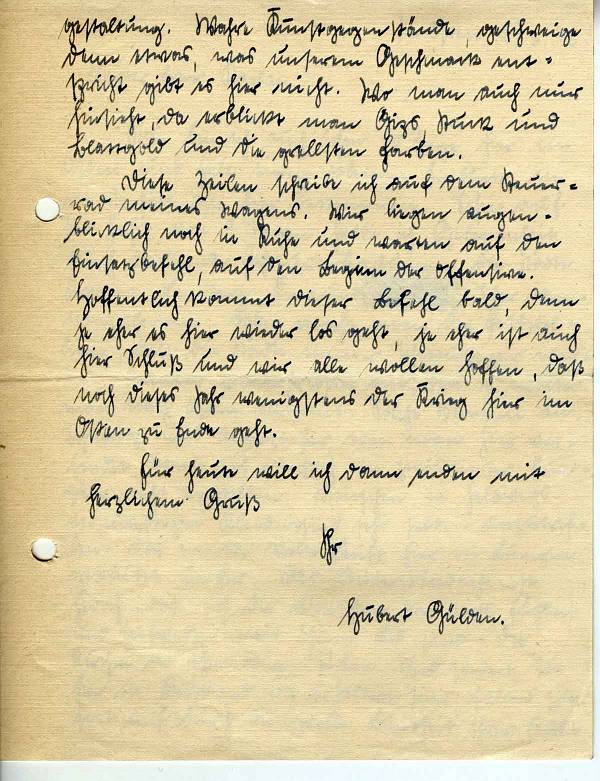 gestaltung. Wahre Kunstgegenstände, geschweige
denn etwas, was unserem Geschmack ent-
spricht gibt es hier nicht. Wo man auch nur
hinsieht, da erblickt man Gips, Stuck und
Blattgold und die grellsten Farben.
Diese Zeilen schreibe ich auf dem Steuer-
rad meines Wagens. Wir liegen augen-
blicklich noch in Ruhe und warten auf den
Einsatzbefehl, auf den Beginn der Offensive.
Hoffentlich kommt dieser Befehl bald, denn
je eher es hier wieder los geht, je eher ist auch
hier Schluß und wir alle wollen hoffen, daß
noch dieses Jahr wenigstens der Krieg hier im
Osten zu Ende geht.
Für heute will ich dann enden mit
herzlichem Gruß
Ihr
Hubert Gülden.